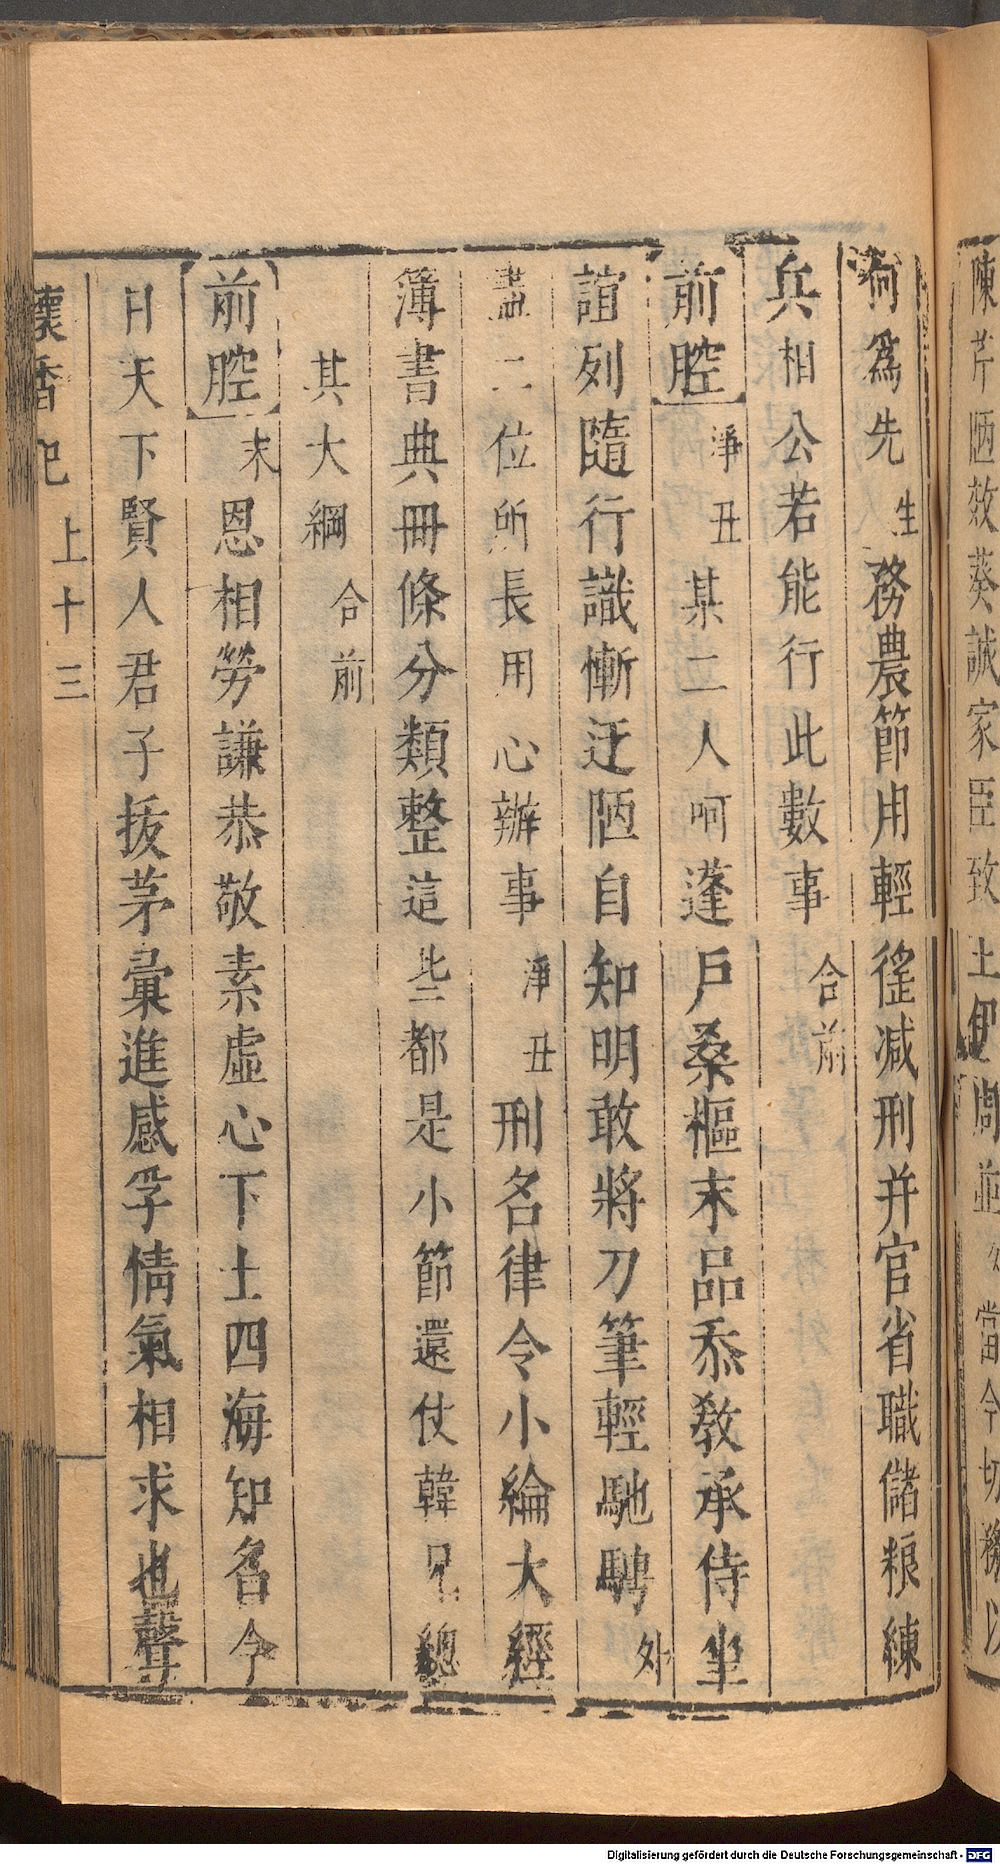 陳芹陋效葵誠家臣致 土伊周並 當今切務以
何爲先 生 務農節用輕徭減刑并官省職儲粮練
兵相公若能行此數事 合前
前腔 淨丑 某二人呵蓬戶桑樞末品忝敎承侍坐
誼列隨行識慚迂陋自知明敢將刀筆輕馳騁 外
盡二位所長用心辦事 淨丑 刑名律令小綸大經
簿書典冊條分類整這些都是小節還仗韓兄總
其大綱 合前
前腔 末 恩相勞謙恭敬素虛心下士四海知名今
日天下賢人君子拔茅彙進感孚情氣相求也聲
懷香記 上十三
Digitalisierung gefördert durch die Deutsche Forschungsgemeinschaft - DFG